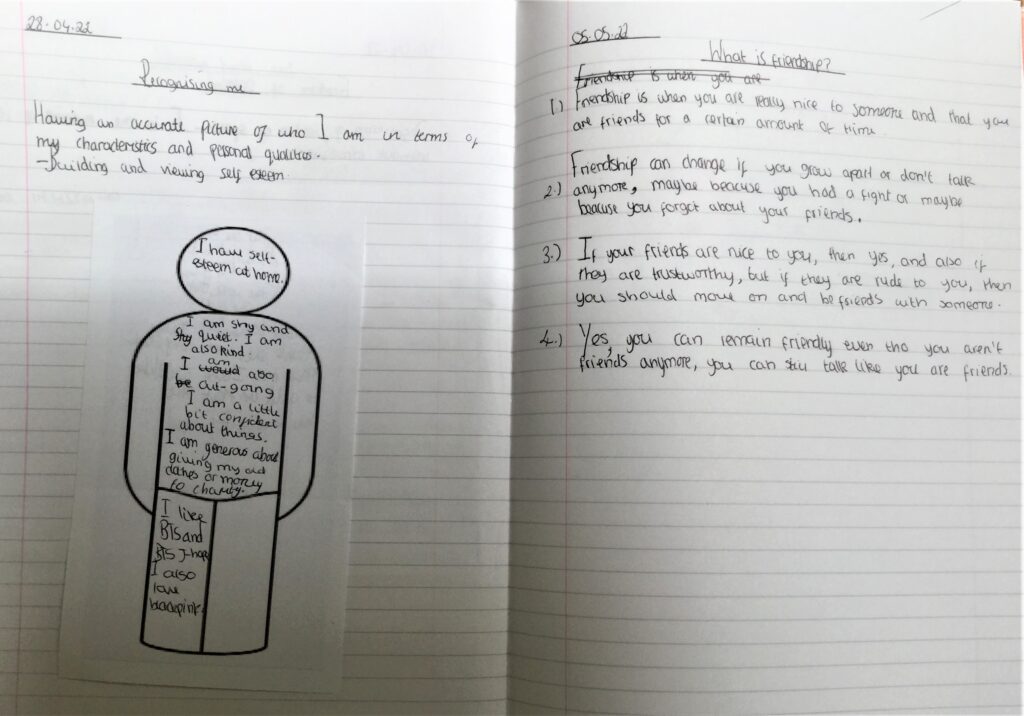 28.04.22
Recognising me
Having an accurate picture of who I am in terms of
my characteristics and personal qualities.
- Building and viewing self esteem.
I have self-
esteem at home.
I am shy and
shy quiet. I am
also kind.
I am would also
be out-going
I am a little
bit confident
about things.
I am generous about
giving my old
clothes or money
to charity.
I like
BTS and
BTS J-hope
I also
love
blackpink.
05.05.22
What is friendship?
Friendship is when you are
1.) Friendship is when you are really nice to someone and that you
are friends for a certain amount of time.
Friendship can change if you grow apart or don't talk
2.) anymore, maybe beacuse you had a fight or maybe
beacuse you forgot about your friends.
3.) If your friends are nice to you, then yes, and also if
they are trustworthy, but if they are rude to you, then
you should move on and be friends with someone.
4.) Yes, you can remain friendly even tho you aren't
friends anymore, you can still talk like you are friends.